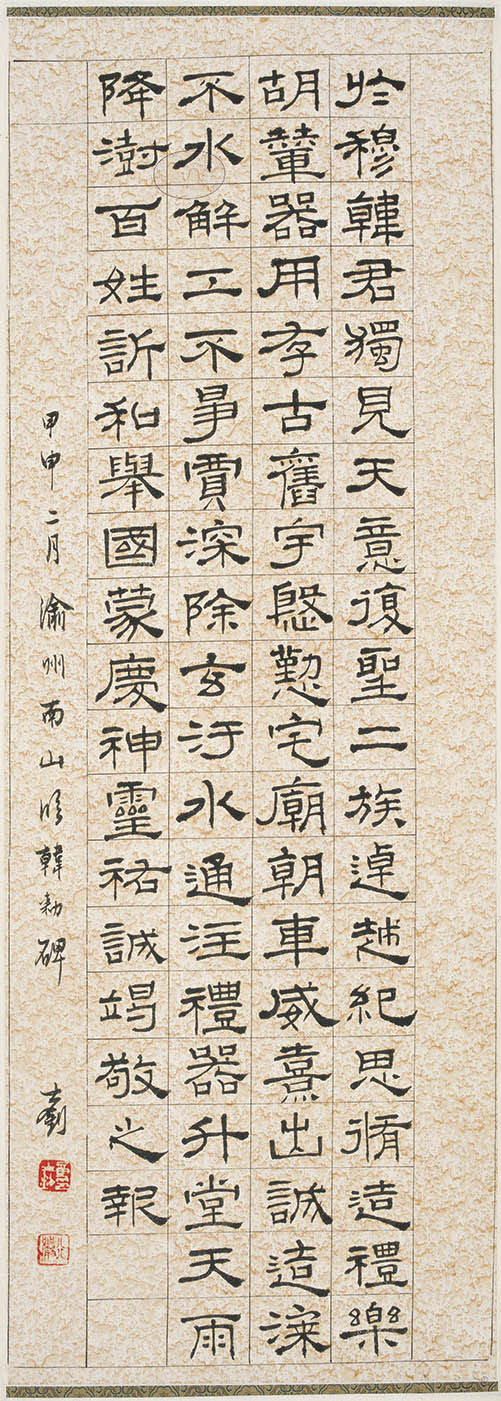 於穆韓君獨見天意復聖二族逴越紀思脩造禮樂
胡輦器用存古舊宇慇懃宅廟朝車威熹出誠造漆
不水解工不爭賈深除玄汙水通注禮器升堂天雨
降澍百姓訢和舉國蒙慶神靈祐誠竭敬之報
甲申二月渝州南山臨韓勅碑